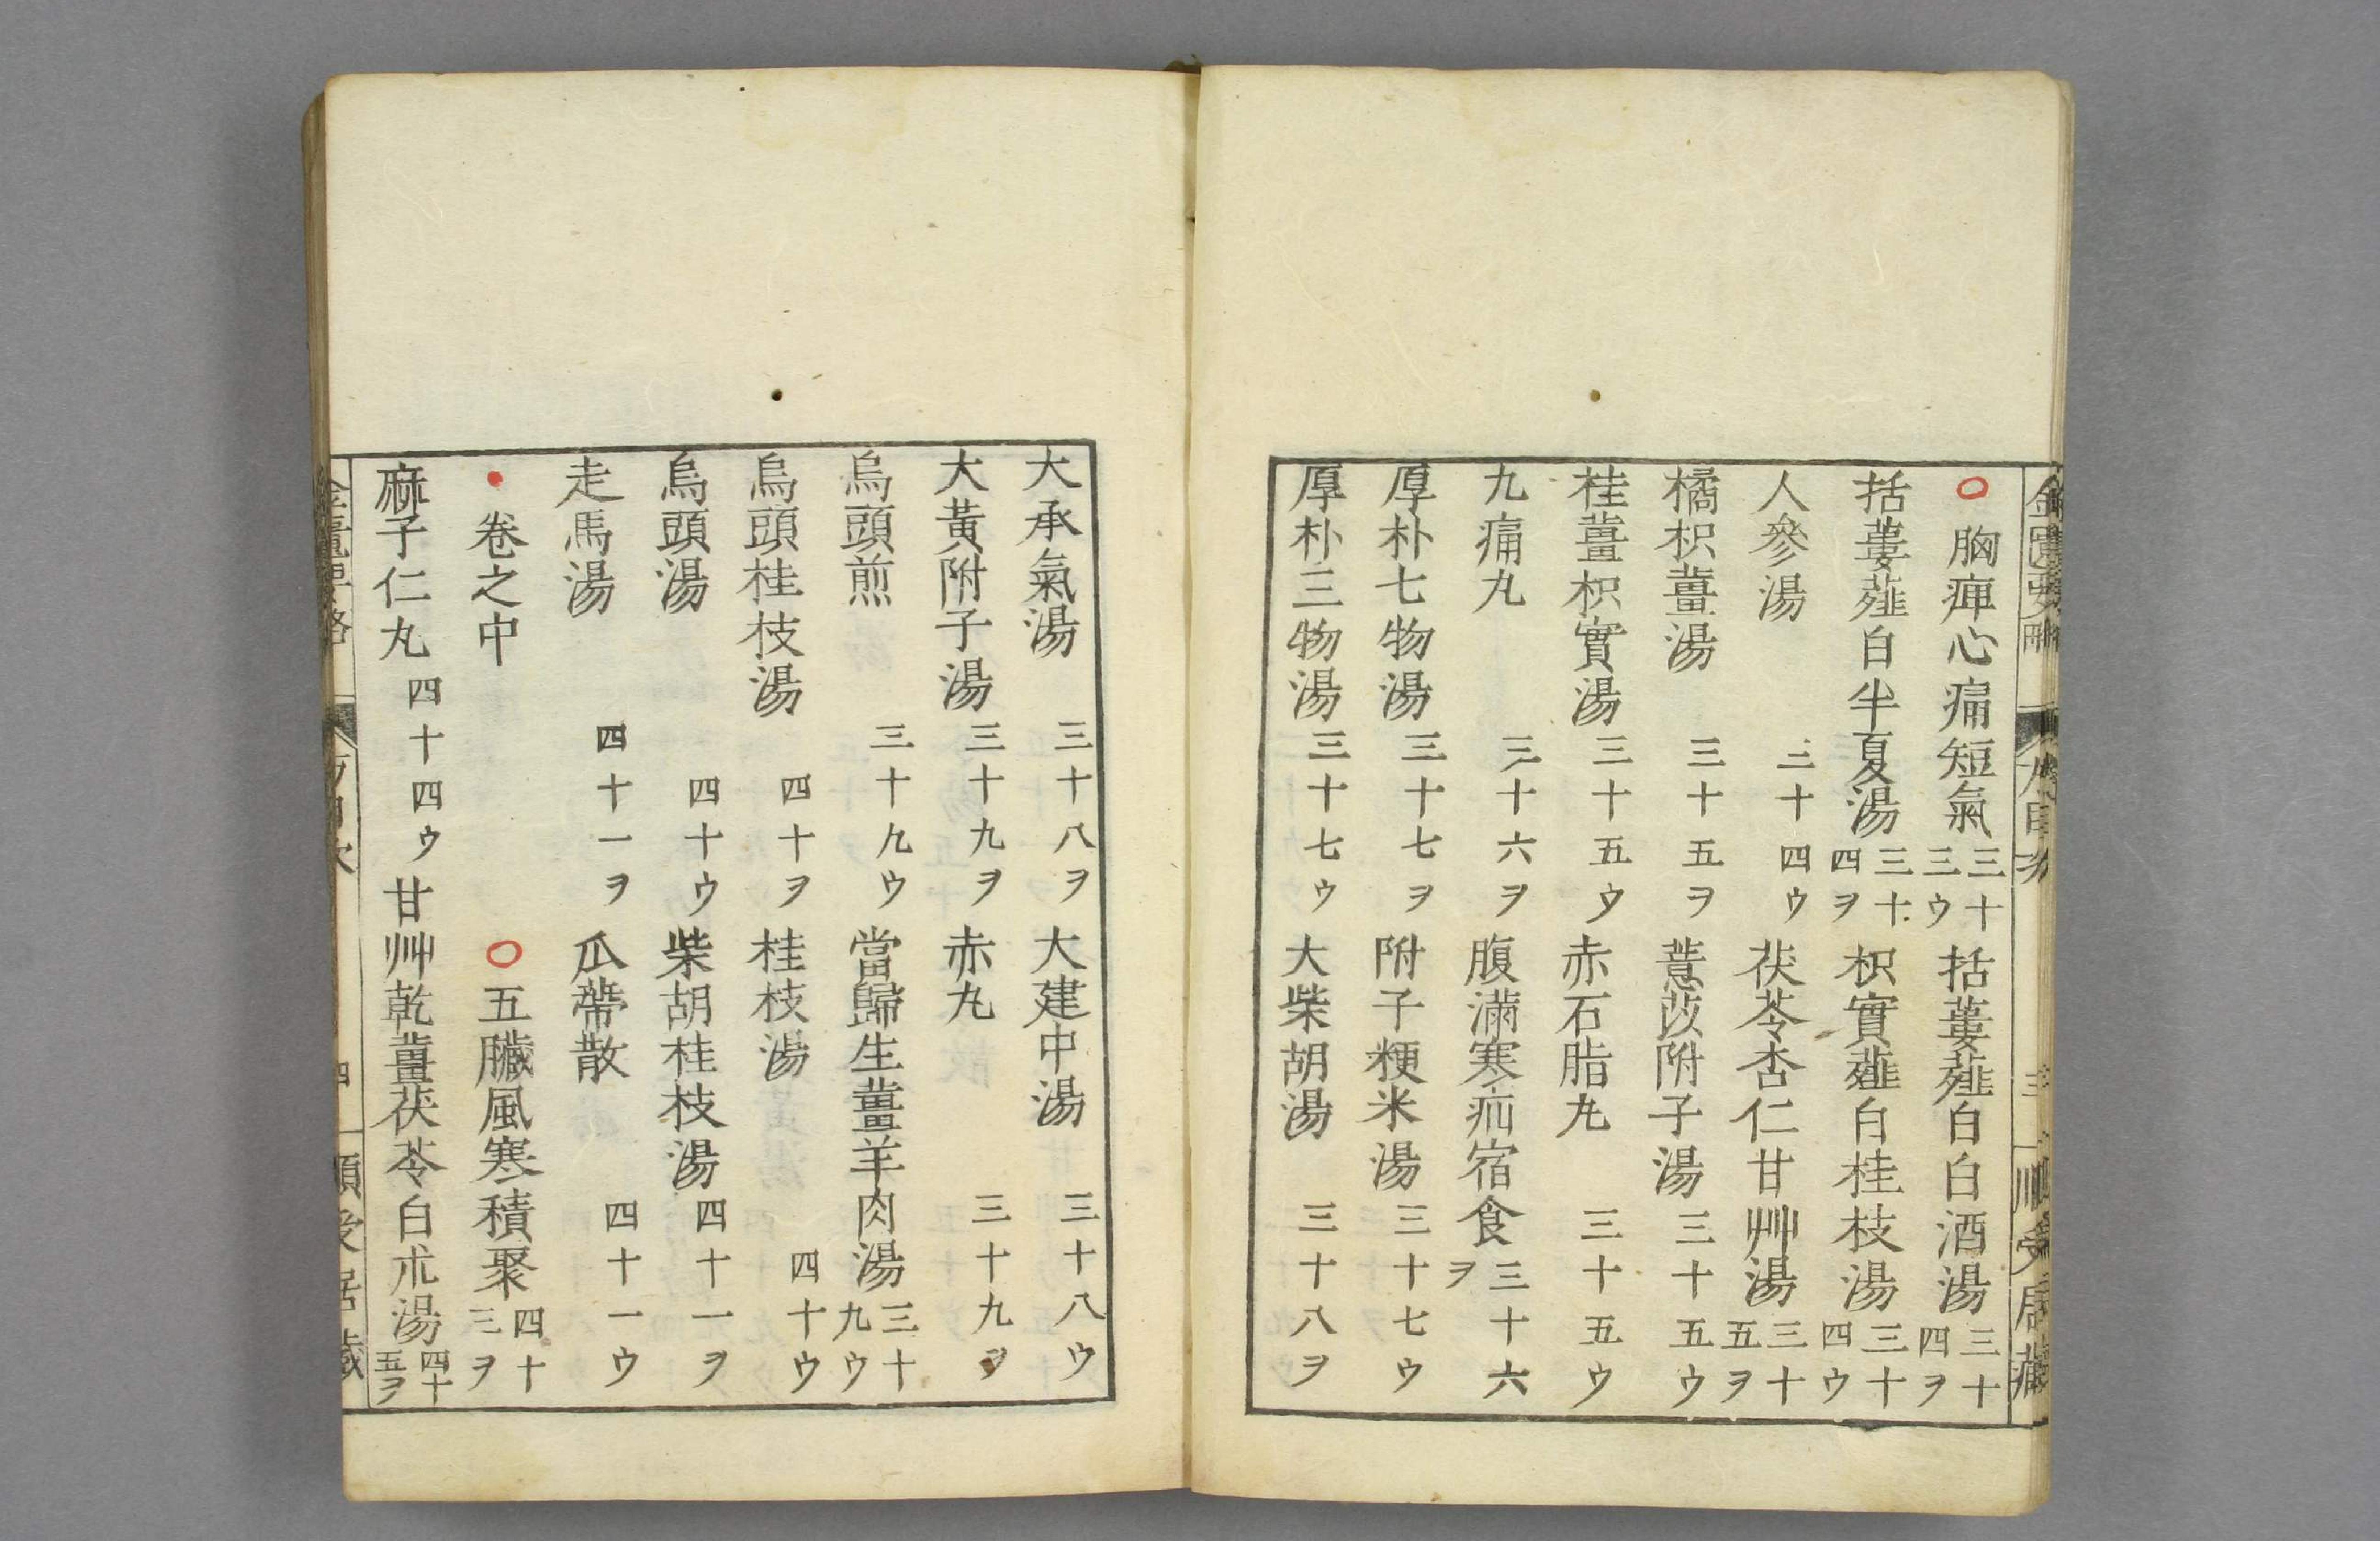 胸痺心痛短氣 三十三ウ 括蔞薤白白酒湯 三十四ヲ
括蔞薤白半夏湯 三十四ヲ 枳實薤白桂枝湯 三十四ウ
人參湯 三十四ウ 茯苓杏仁甘艸湯 三十五ヲ
橘枳薑湯 三十五ヲ 薏苡附子湯 三十五ウ
桂薑枳實湯 三十五ウ 赤石脂丸 三十五ウ
九痛丸 三十六ヲ 腹滿寒疝宿食 三十六ヲ
厚朴七物湯 三十七ヲ 附子粳米湯 三十七ウ
厚朴三物湯 三十七ウ 大柴胡湯 三十八ヲ
大承氣湯 三十八ヲ 大建中湯 三十八ウ
大黃附子湯 三十九ヲ 赤丸 三十九ヲ
烏頭煎 三十九ウ 當歸生薑羊肉湯 三十九ウ
烏頭桂枝湯 四十ヲ 桂枝湯 四十ウ
烏頭湯 四十ウ 柴胡桂枝湯 四十一ヲ
走馬湯 四十一ヲ 瓜蔕散 四十一ウ
卷之中 五臟風寒積聚 四十三ヲ
麻子仁丸 四十四ウ 甘艸乾薑茯苓白朮湯 四十五ヲ